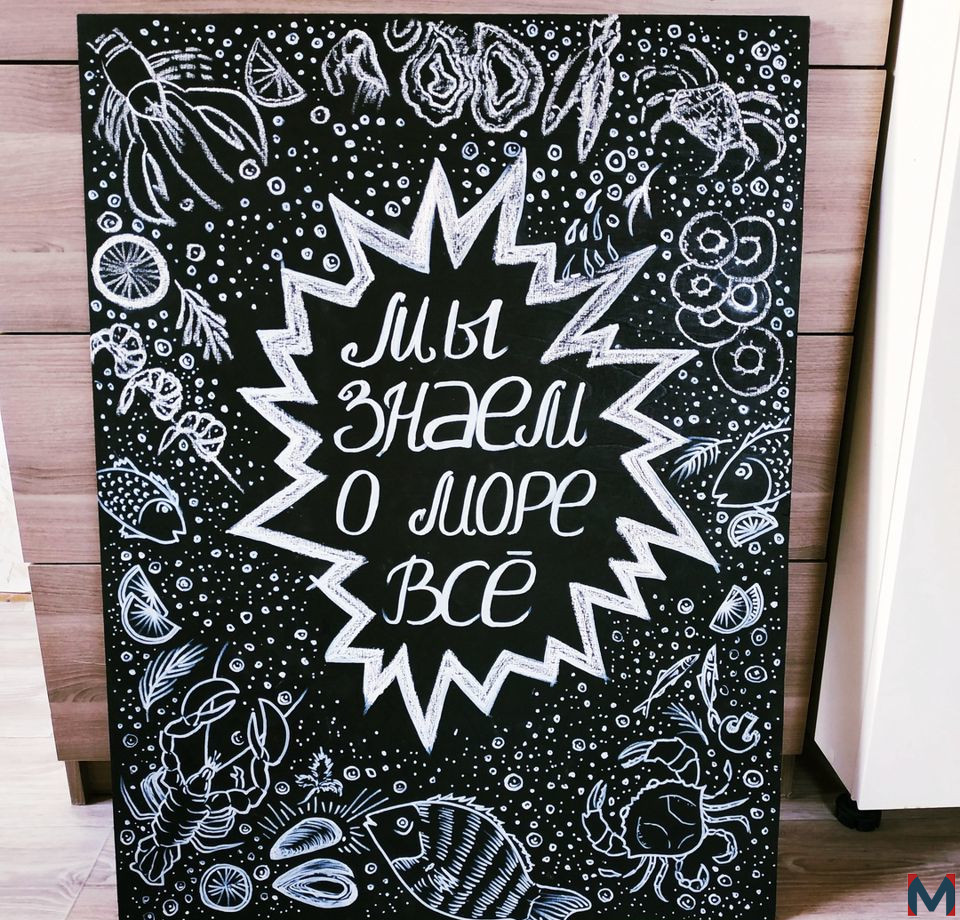 мы
знаем
о море
всё
M